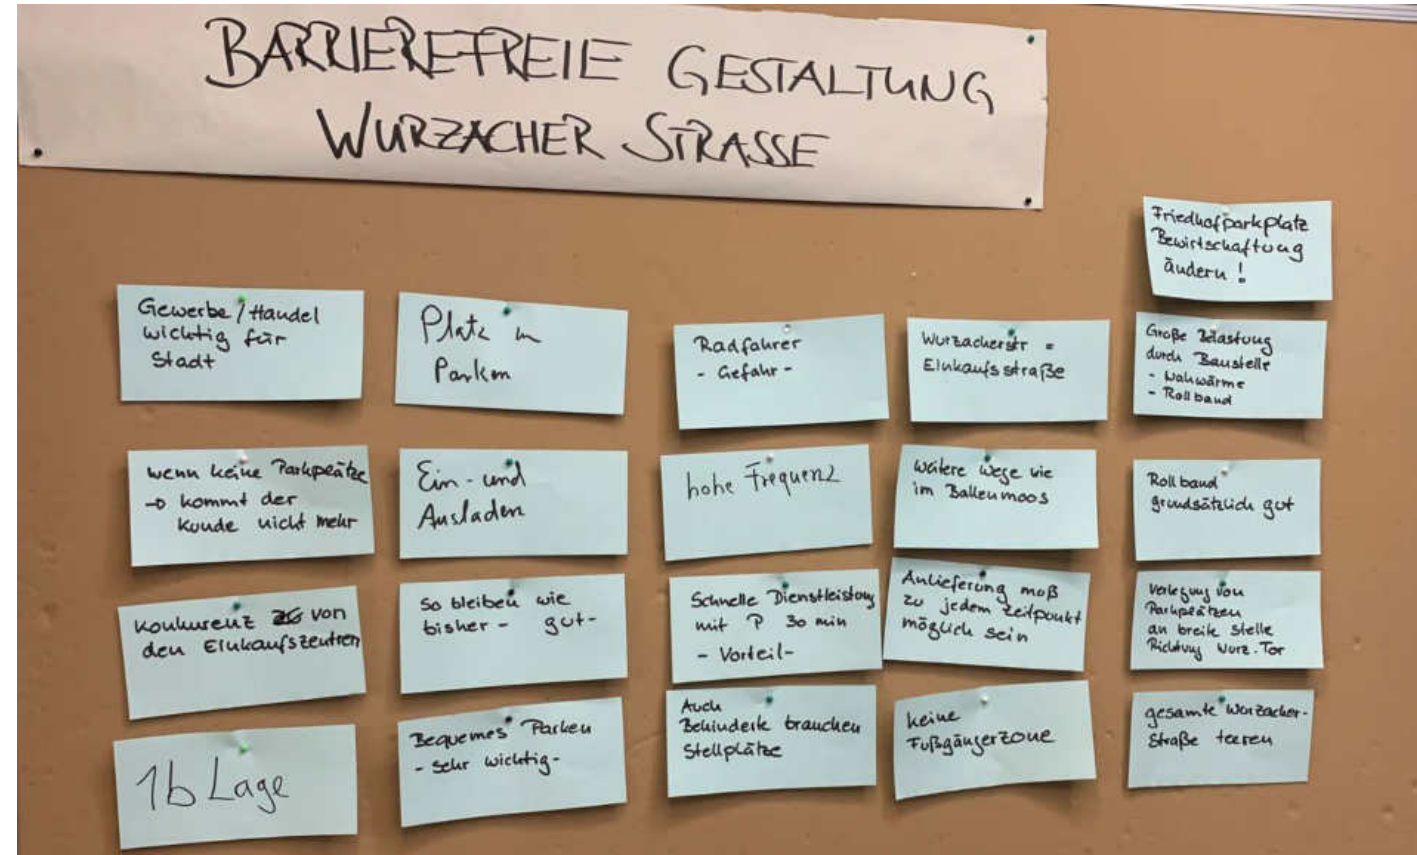 BARRIEREFREIE GESTALTUNG
WURZACHER STRASSE
Gewerbe / Handel
wichtig für
Stadt
wenn keine Parkplätze
→ kommt der
Kunde nicht mehr
Konkurenz von
den Einkaufszentren
1b Lage
Platz
Parken
Ein- und
Ausladen
So bleiben wie
bisher - gut-
Bequemes Parken
- sehr wichtig-
Radfahrer
- Gefahr -
hohe Frequenz
Schnelle Dienstleistung
mit P 30 min
- Vorteil-
Auch
Behinderte brauchen
Stellplätze
Wurzacherstr =
Einkaufsstraße
weitere Wege wie
im Ballenmoos
Anlieferung muß
zu jedem Zeitpunkt
möglich sein
keine
Fußgängerzone
Friedhofparkplatz
Bewirtschaftung
ändern !
Große Belastung
durch Baustelle
- Nahwärme
- Rollband
Rollband
grundsätzlich gut
Verlegung von
Parkplätzen
an breite Stelle
Richtung Wurz. Tor
gesamte Wurzacher-
Straße teeren